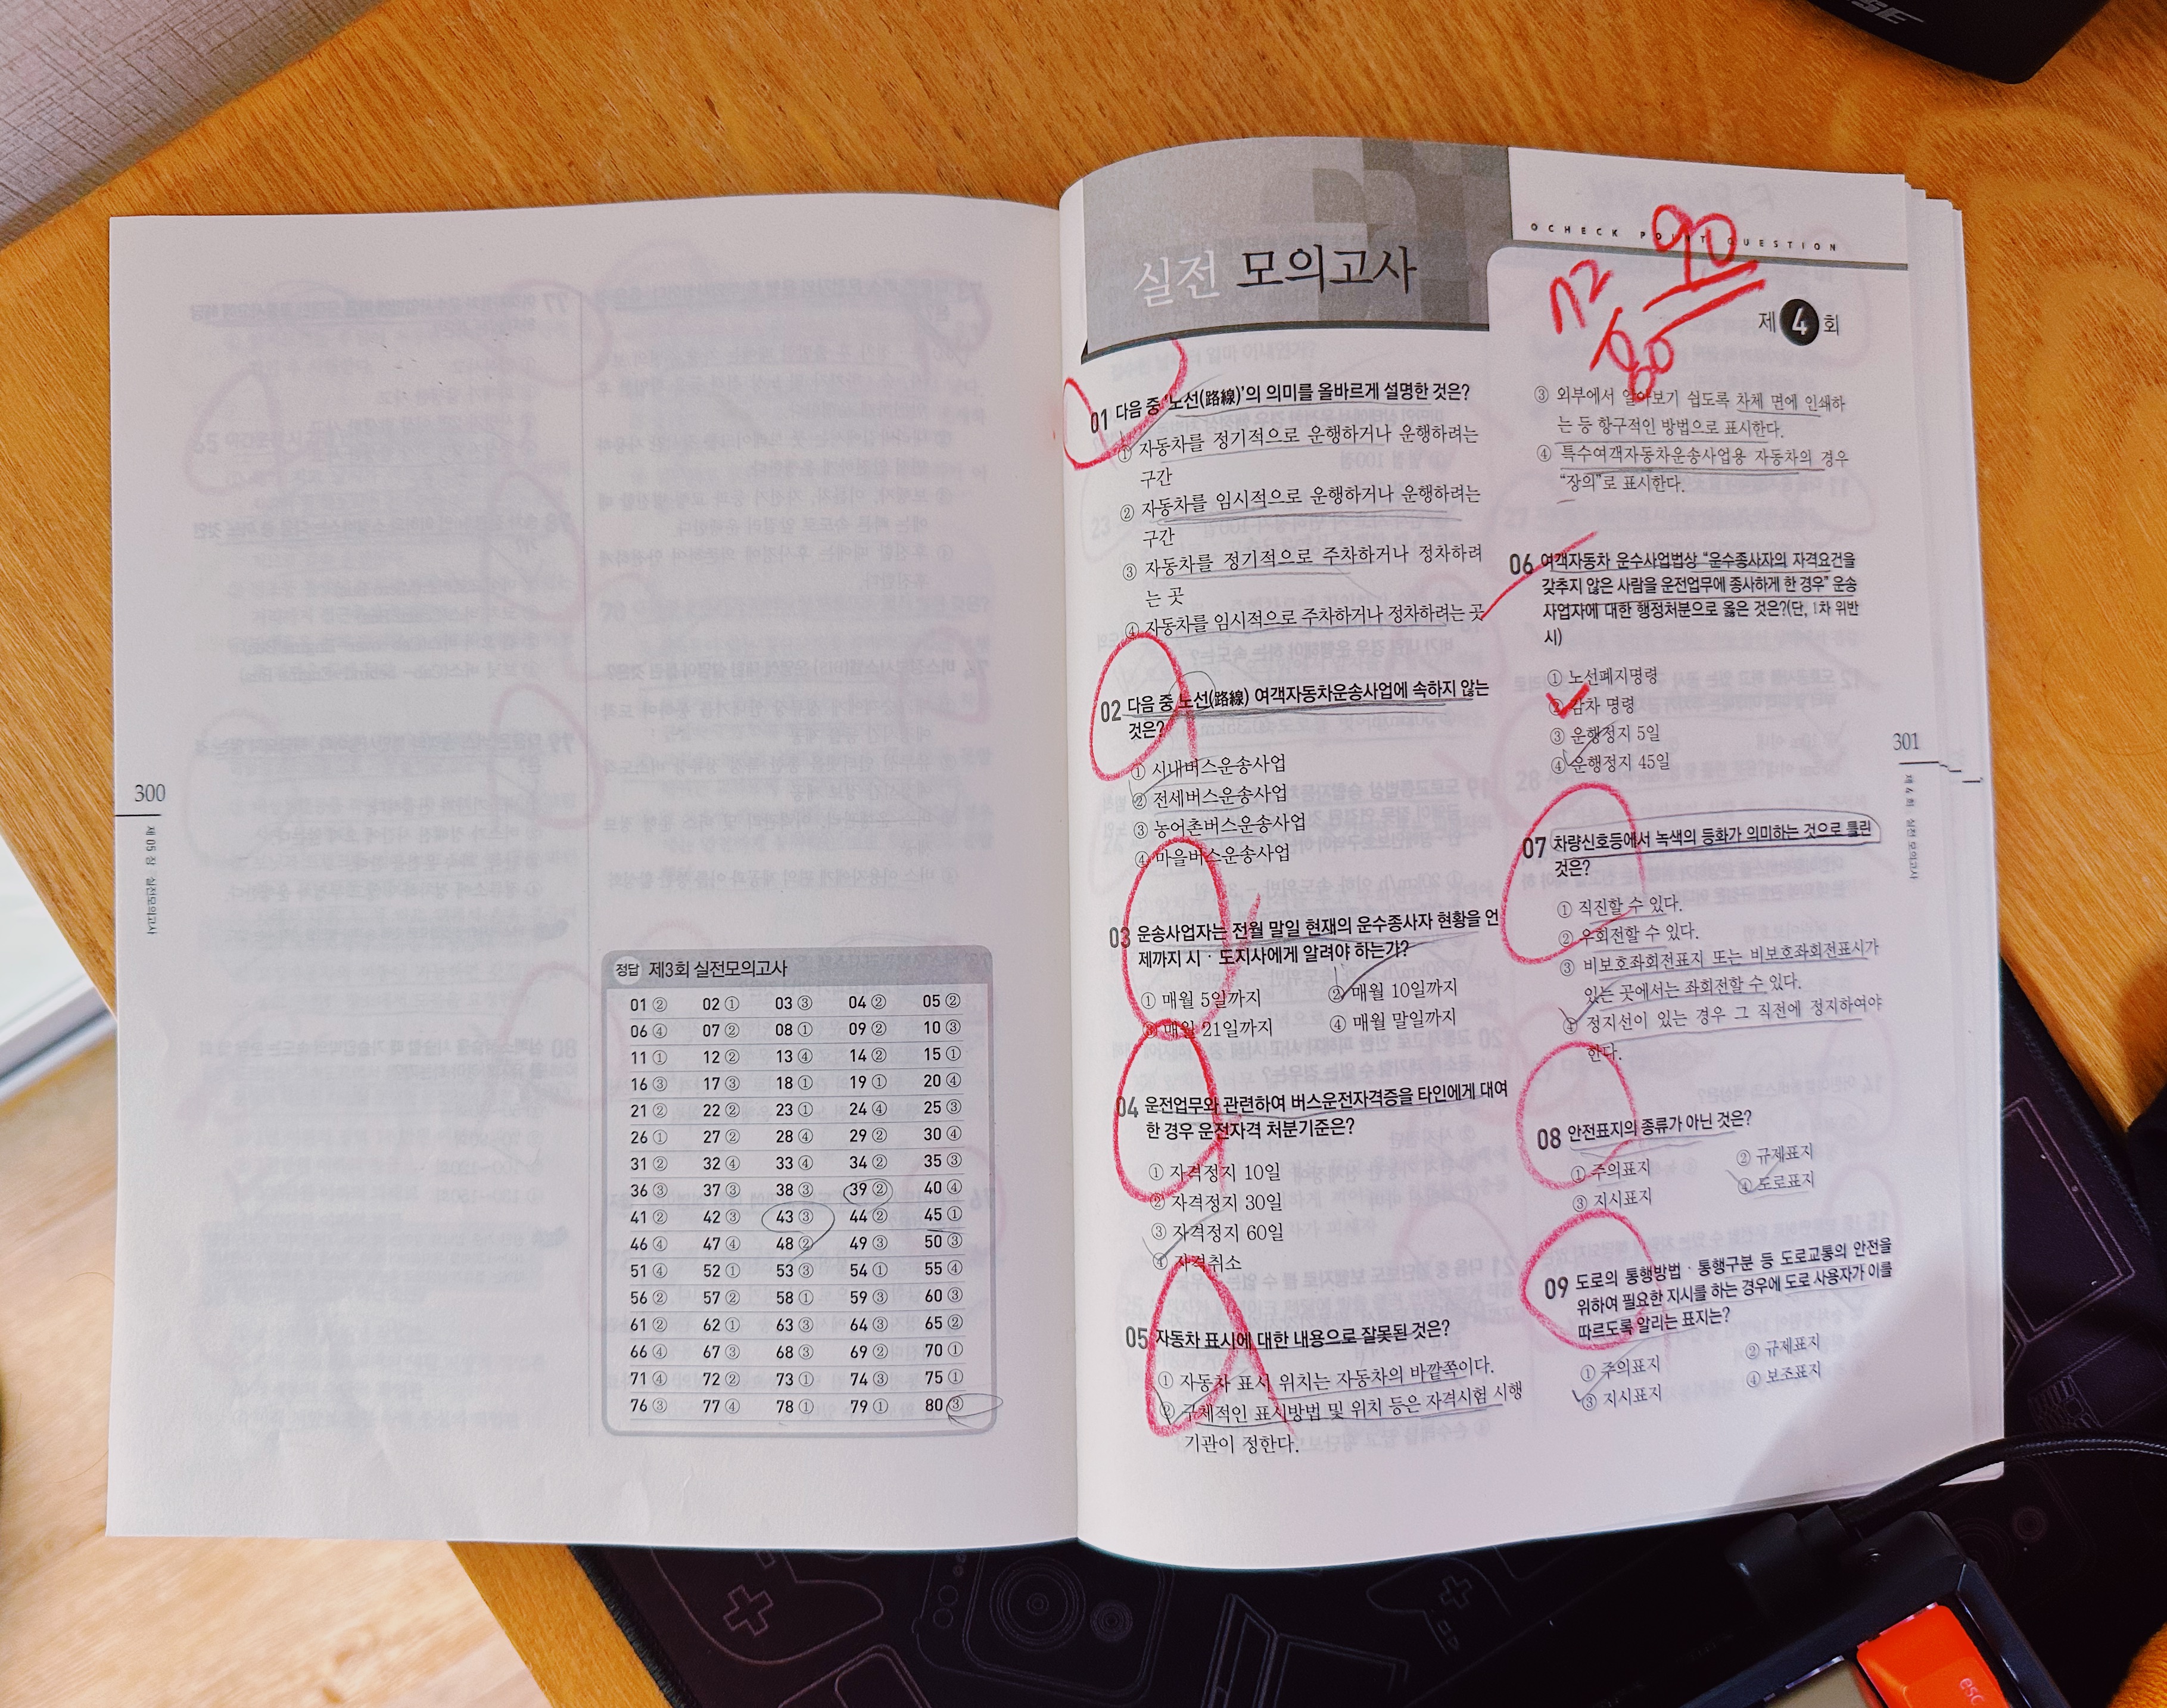 SE
300
제 05 장 · 실전모의고사
정답 제3회 실전모의고사
01 ② 02 ① 03 ③ 04 ② 05 ②
06 ④ 07 ② 08 ① 09 ② 10 ③
11 ① 12 ② 13 ④ 14 ② 15 ①
16 ③ 17 ③ 18 ① 19 ① 20 ④
21 ② 22 ② 23 ① 24 ④ 25 ③
26 ① 27 ② 28 ④ 29 ② 30 ④
31 ② 32 ④ 33 ④ 34 ② 35 ③
36 ③ 37 ③ 38 ③ 39 ② 40 ④
41 ② 42 ③ 43 ③ 44 ② 45 ①
46 ④ 47 ④ 48 ② 49 ③ 50 ③
51 ④ 52 ① 53 ③ 54 ① 55 ④
56 ② 57 ② 58 ① 59 ③ 60 ③
61 ② 62 ① 63 ③ 64 ③ 65 ②
66 ④ 67 ③ 68 ③ 69 ② 70 ①
71 ④ 72 ② 73 ① 74 ③ 75 ①
76 ③ 77 ④ 78 ① 79 ① 80 ③
실전 모의고사
OCHECK POINT QUESTION
90
72
80
제 4 회
01 다음 중 '노선(路線)'의 의미를 올바르게 설명한 것은?
① 자동차를 정기적으로 운행하거나 운행하려는
구간
② 자동차를 임시적으로 운행하거나 운행하려는
구간
③ 자동차를 정기적으로 주차하거나 정차하려
는 곳
④ 자동차를 임시적으로 주차하거나 정차하려는 곳
02 다음 중 노선(路線) 여객자동차운송사업에 속하지 않는
것은?
① 시내버스운송사업
② 전세버스운송사업
③ 농어촌버스운송사업
④ 마을버스운송사업
03 운송사업자는 전월 말일 현재의 운수종사자 현황을 언
제까지 시 · 도지사에게 알려야 하는가?
① 매월 5일까지 ② 매월 10일까지
③ 매월 21일까지 ④ 매월 말일까지
04 운전업무와 관련하여 버스운전자격증을 타인에게 대여
한 경우 운전자격 처분기준은?
① 자격정지 10일
② 자격정지 30일
③ 자격정지 60일
④ 자격취소
05 자동차 표시에 대한 내용으로 잘못된 것은?
① 자동차 표시 위치는 자동차의 바깥쪽이다.
② 구체적인 표시방법 및 위치 등은 자격시험 시행
기관이 정한다.
③ 외부에서 알아보기 쉽도록 차체 면에 인쇄하
는 등 항구적인 방법으로 표시한다.
④ 특수여객자동차운송사업용 자동차의 경우
“장의”로 표시한다.
06 여객자동차 운수사업법상 “운수종사자의 자격요건을
갖추지 않은 사람을 운전업무에 종사하게 한 경우” 운송
사업자에 대한 행정처분으로 옳은 것은?(단, 1차 위반
시)
① 노선폐지명령
② 감차 명령
③ 운행정지 5일
④ 운행정지 45일
07 차량신호등에서 녹색의 등화가 의미하는 것으로 틀린
것은?
① 직진할 수 있다.
② 우회전할 수 있다.
③ 비보호좌회전표지 또는 비보호좌회전표시가
있는 곳에서는 좌회전할 수 있다.
④ 정지선이 있는 경우 그 직전에 정지하여야
한다.
08 안전표지의 종류가 아닌 것은?
① 주의표지 ② 규제표지
③ 지시표지 ④ 도로표지
09 도로의 통행방법 · 통행구분 등 도로교통의 안전을
위하여 필요한 지시를 하는 경우에 도로 사용자가 이를
따르도록 알리는 표지는?
① 주의표지 ② 규제표지
③ 지시표지 ④ 보조표지
301
제 4 회 실전 모의고사
esc